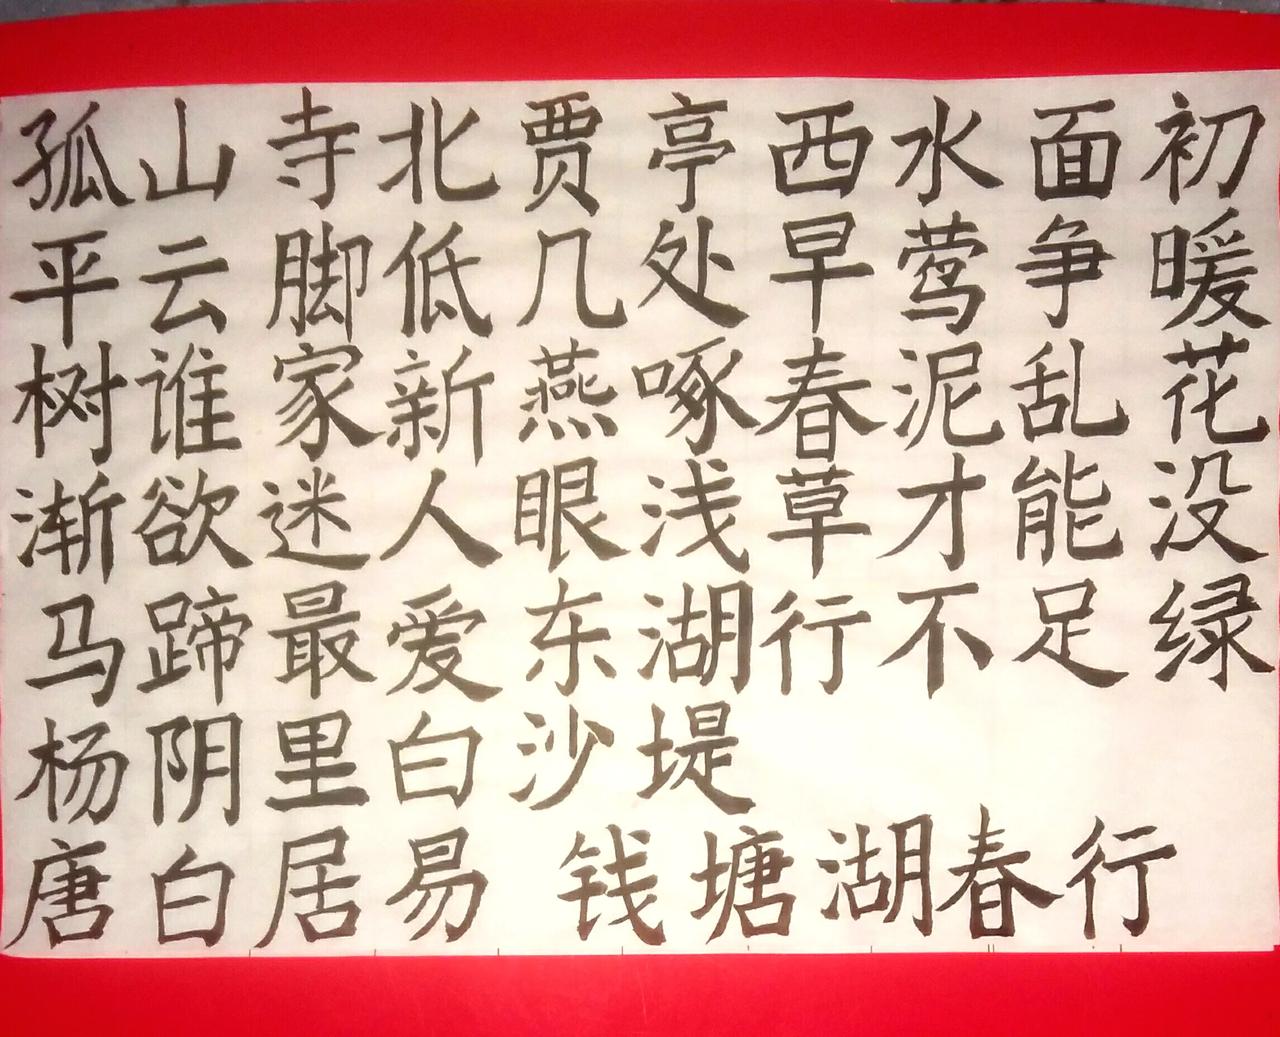 孤山寺北贾亭西水面初
平云脚低几处早莺争暖
树谁家新燕啄春泥乱花
渐欲迷人眼浅草才能没
马蹄最爱东湖行不足绿
杨阴里白沙堤
唐白居易 钱塘湖春行